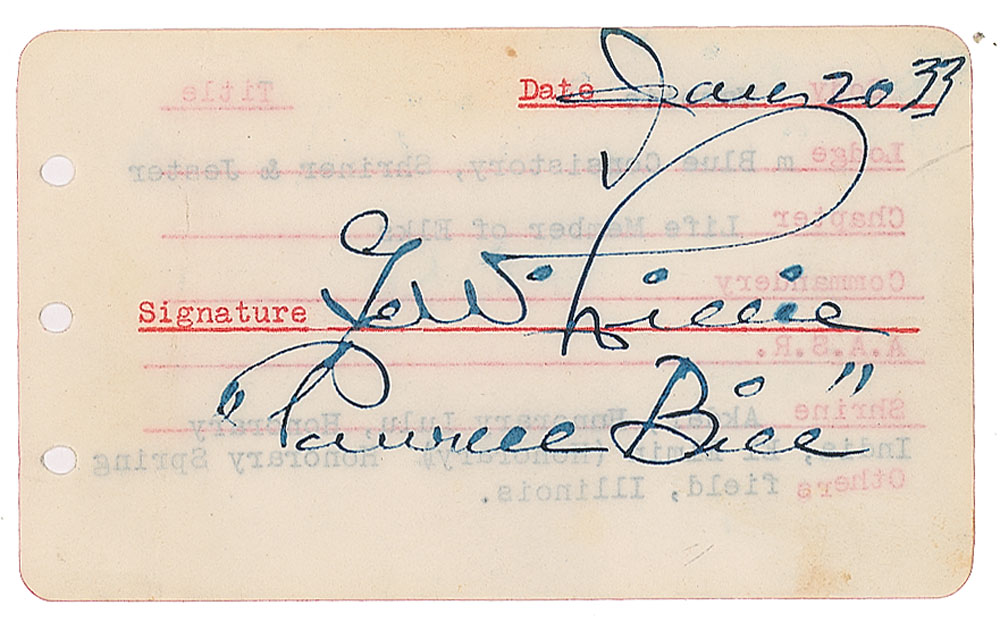 Date Jan 20 33
Signature G W Lillie
"Pawnee Bill"
Title
Lodge m Blue Consistory, Shriner & Jester
Chapter Life Member of Elks
Commandery
A.A.S.R.
Shrine Honorary Lulu, Honorary
(Honorary) Honorary Spring
Others field, Illinois.